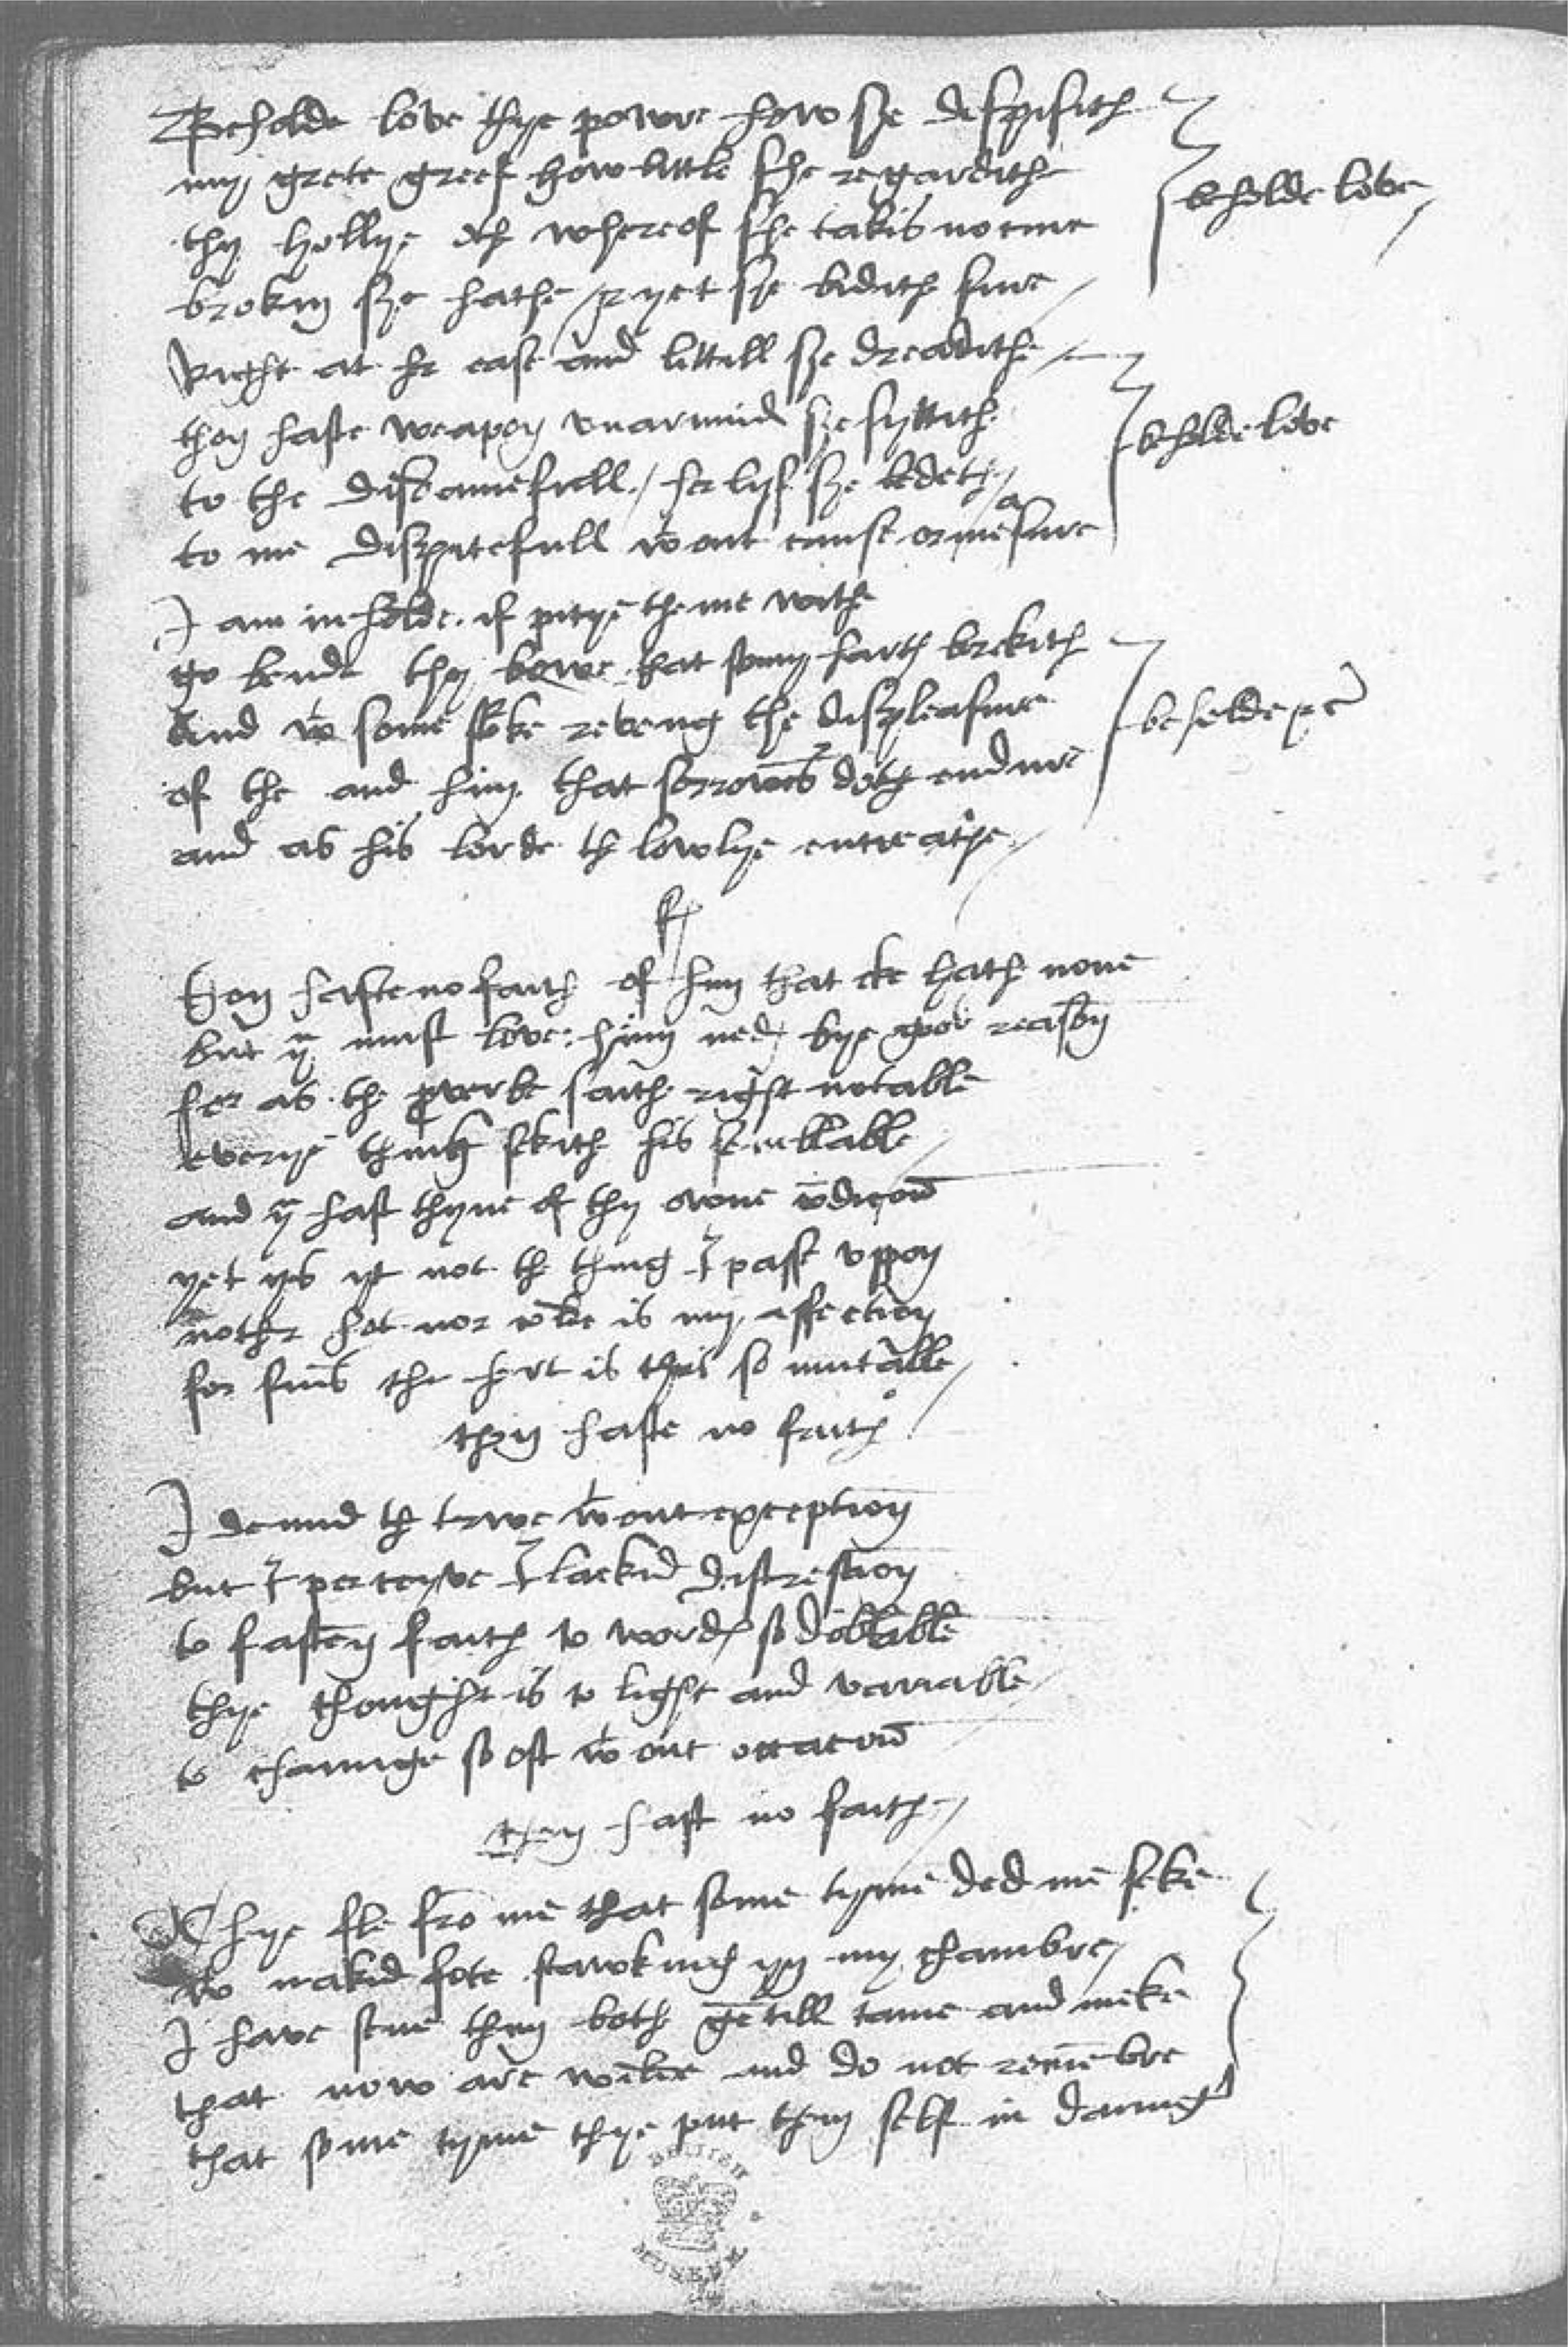 Beholde love thye powre how she despisith
my grete greef how little she regardithe
beholde love
thy hollye oth whereof she takis no cure
brokin she hathe & yet she bidith sure
Right at her ease and littill she dreadithe
thou haste weapon unarmid she syttith
beholde love
to the disdainefull her lyf she ledeth
to me dispitefull wtout cause or measure
I am in holde if pitye the meveth
go bende thy bowe that stony hartes brekith
And wt some stroke reveng the displeasure
beholde &c
of the and him that sorrowes doth endure
and as his lorde the lowlye entreathe
Thou haste no faith of him that eke hath none
but yu must love him nedes bye good reason
for as the proverbe saith right notable
everye thing sekith his semblable
and yu hast thyne of thy owne condicion
yet ys yt not the thing I passe uppon
nother hot nor colde is my affection
for sins the hert is thus so mutable
thou haste no faith
I demid the trwe wtout exception
but I perceyve I lackid discression
to fasten faith to wordes so doblable
thye thought is to light and variable
to chaunge so oft wtout occacion
thou hast no faith
They fle from me that some tyme ded me seke
wt nakid fote stawking yn my chambre
I have sene them both gentill tame and meke
that now are wilde and do not remembre
that some tyme thye put them self in daunger
BRITISH
MUSEUM